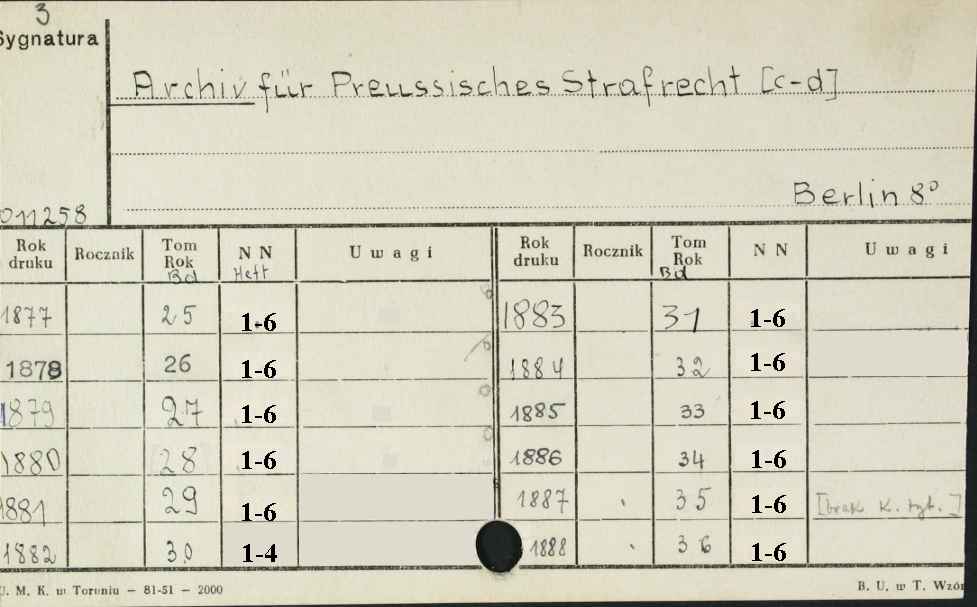 3
Sygnatura
Archiv für Preussisches Strafrecht [c-d]
Berlin 8°
011258
Rok druku Rocznik Tom Rok Bd N N Heft Uwagi Rok druku Rocznik Tom Rok Bd N N Uwagi
1877 25 1-6 1883 31 1-6
1878 26 1-6 1884 32 1-6
1879 27 1-6 1885 33 1-6
1880 28 1-6 1886 34 1-6
1881 29 1-6 1887 35 1-6 [brak k. tyt.]
1882 30 1-4 1888 36 1-6
U. M. K. w Toruniu — 81-51 — 2000 B. U. w T. Wzór